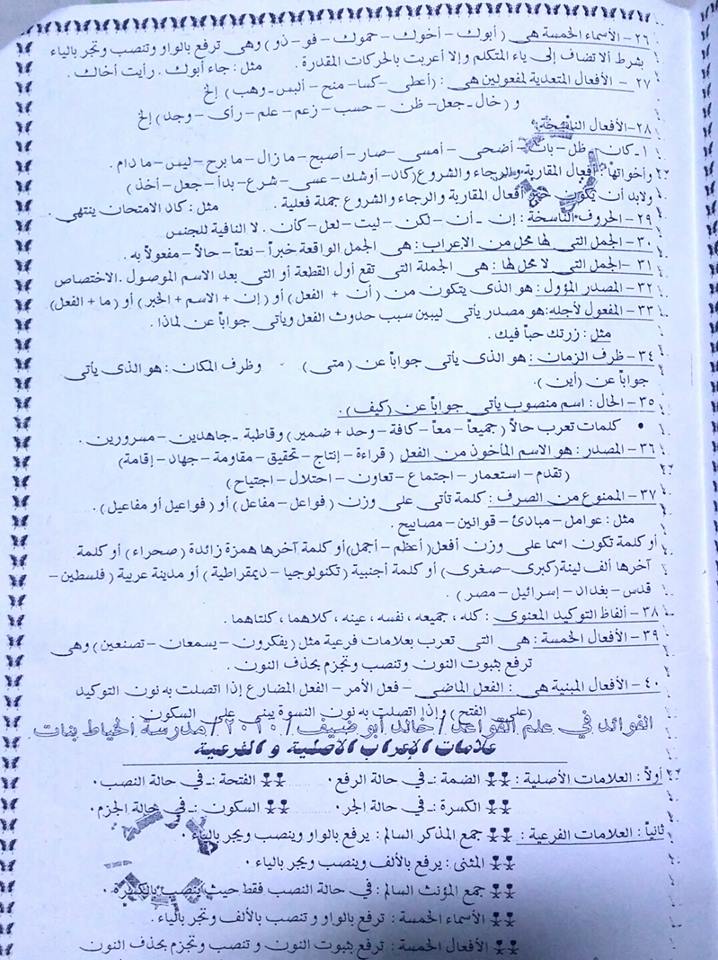 ٢٦- الأسماء الخمسة هى ( أبوك - أخوك - حموك - فو - ذو ) وهى ترفع بالواو وتنصب وتجر بالياء
بشرط ألا تضاف إلى ياء المتكلم وإلا أعربت بالحركات المقدرة . مثل : جاء أبوك . رأيت أخاك .
٢٧- الأفعال المتعدية لمفعولين هى : ( أعطى - كسا - منح - ألبس - وهب ) إلخ
و ( خال - جعل - ظن - حسب - زعم - علم - رأى - وجد ) إلخ
٢٨- الأفعال الناسخة :
١- كان - ظل - بات - أضحى - أمسى - صار - أصبح - ما زال - ما برح - ليس - ما دام .
وأخواتها أفعال المقاربة والرجاء والشروع ( كاد - أوشك - عسى - شرع - بدأ - جعل - أخذ )
ولابد أن يكون خبر أفعال المقاربة والرجاء والشروع جملة فعلية . مثل : كاد الامتحان ينتهى .
٢٩- الحروف الناسخة : إن - أن - لكن - ليت - لعل - كأن . لا النافية للجنس
٣٠- الجمل التى لها محل من الإعراب : هى الجمل الواقعة خبراً - نعتاً - حالاً - مفعولاً به .
٣١- الجمل التى لا محل لها : هى الجملة التى تقع أول القطعة أو التى بعد الاسم الموصول . الاختصاص
٣٢- المصدر المؤول : هو الذى يتكون من ( أن + الفعل ) أو ( إن + الاسم + الخبر ) أو ( ما + الفعل )
٣٣- المفعول لأجله : هو مصدر يأتى ليبين سبب حدوث الفعل ويأتى جواباً عن لماذا .
مثل : زرتك حباً فيك .
٣٤- ظرف الزمان : هو الذى يأتى جواباً عن ( متى ) وظرف المكان : هو الذى يأتى
جواباً عن ( أين ) .
٣٥- الحال : اسم منصوب يأتى جواباً عن ( كيف ) .
• كلمات تعرب حالاً ( جميعاً - معاً - كافة - وحد + ضمير ) وقاطبة - جاهدين - مسرورين .
٣٦- المصدر : هو الاسم المأخوذ من الفعل ( قراءة - إنتاج - تحقيق - مقاومة - جهاد - إقامة )
( تقدم - استعمار - اجتماع - تعاون - احتلال - اجتياح )
٣٧- الممنوع من الصرف : كلمة تأتى على وزن ( فواعل - مفاعل ) أو ( فواعيل أو مفاعيل ) .
مثل : عوامل - مبادئ - قوانين - مصابيح .
أو كلمة تكون اسما على وزن أفعل ( أعظم - أجمل ) أو كلمة آخرها همزة زائدة ( صحراء ) أو كلمة
آخرها ألف لينة ( كبرى - صغرى ) أو كلمة أجنبية ( تكنولوجيا - ديمقراطية ) أو مدينة عربية ( فلسطين -
قدس - بغداد - إسرائيل - مصر ) .
٣٨- ألفاظ التوكيد المعنوى : كله ، جميعه ، نفسه ، عينه ، كلاهما ، كلتاهما .
٣٩- الأفعال الخمسة : هى التى تعرب بعلامات فرعية مثل ( يفكرون - يسمعان - تصنعين ) وهى
ترفع بثبوت النون وتنصب وتجزم بحذف النون .
٤٠- الأفعال المبنية هى : الفعل الماضى - فعل الأمر - الفعل المضارع إذا اتصلت به نون التوكيد
( على الفتح ) وإذا اتصلت به نون النسوة يبنى على السكون .
الفوائد في علم القواعد / خالد أبو ضيف / ٢٠١٠ / مدرسة الخياط بنات
علامات الإعراب الأصلية و الفرعية
أولاً : العلامات الأصلية : الضمة :- في حالة الرفع . الفتحة :- في حالة النصب .
الكسرة :- في حالة الجر . السكون :- في حالة الجزم .
ثانياً : العلامات الفرعية : جمع المذكر السالم : يرفع بالواو وينصب ويجر بالياء .
المثنى : يرفع بالألف وينصب ويجر بالياء .
جمع المؤنث السالم : في حالة النصب فقط حيث ينصب بالكسرة .
الأسماء الخمسة : ترفع بالواو و تنصب بالألف وتجر بالياء .
الأفعال الخمسة : ترفع بثبوت النون و تنصب وتجزم بحذف النون